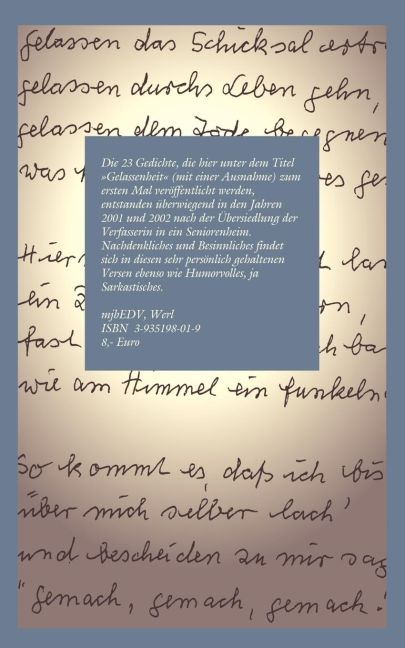 gelassen das Schicksal
gelassen durchs Leben gehn,
gelassen dem Tode begegnen
was
Die 23 Gedichte, die hier unter dem Titel
»Gelassenheit« (mit einer Ausnahme) zum
ersten Mal veröffentlicht werden,
entstanden überwiegend in den Jahren
2001 und 2002 nach der Übersiedlung der
Verfasserin in ein Seniorenheim.
Nachdenkliches und Besinnliches findet
sich in diesen sehr persönlich gehaltenen
Versen ebenso wie Humorvolles, ja
Sarkastisches.
mjbEDV, Werl
ISBN 3-935198-01-9
8,- Euro
Hier
ein
fast
wie am Himmel ein funkeln
So kommt es, daß ich bis
über mich selber lach'
und bescheiden zu mir sag
"gemach, gemach, gemach."